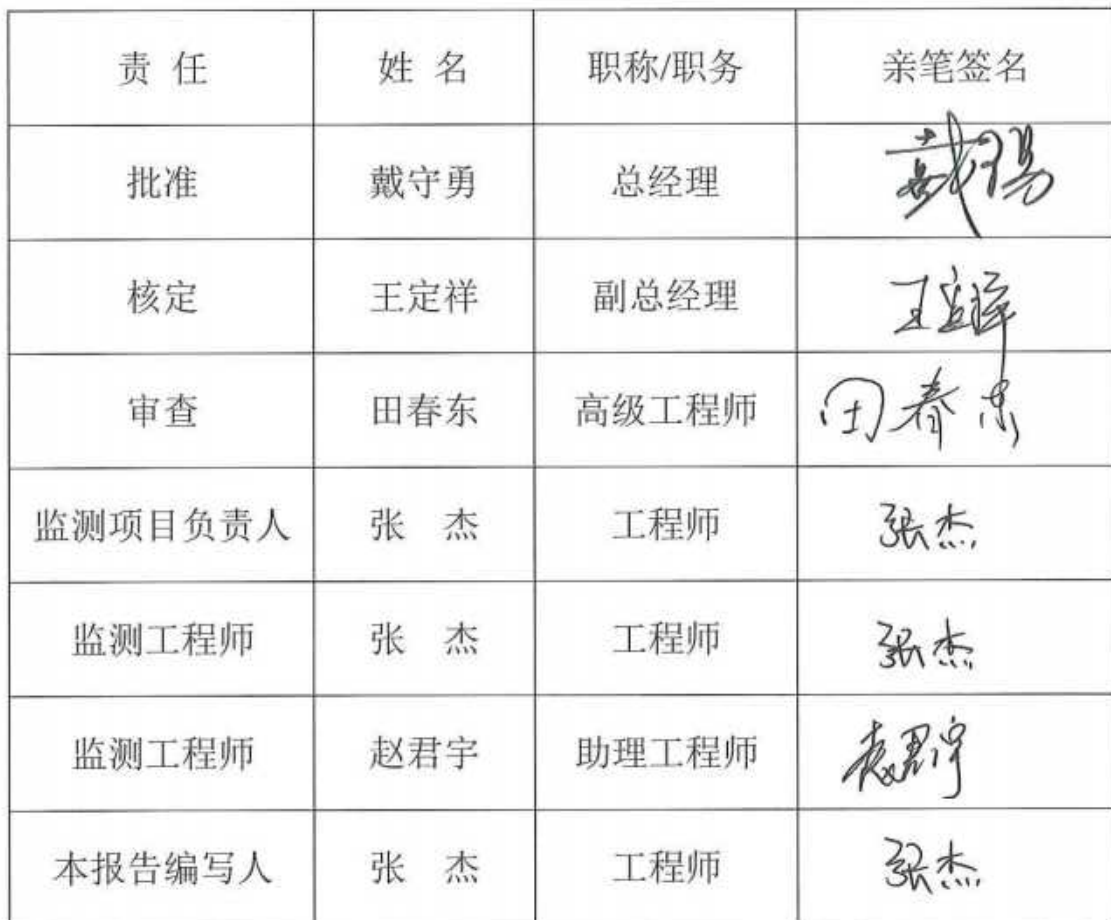 责 任 姓 名 职称/职务 亲笔签名
批准 戴守勇 总经理
核定 王定祥 副总经理 王定祥
审查 田春东 高级工程师 田春东
监测项目负责人 张 杰 工程师 张杰
监测工程师 张 杰 工程师 张杰
监测工程师 赵君宇 助理工程师 赵君宇
本报告编写人 张 杰 工程师 张杰